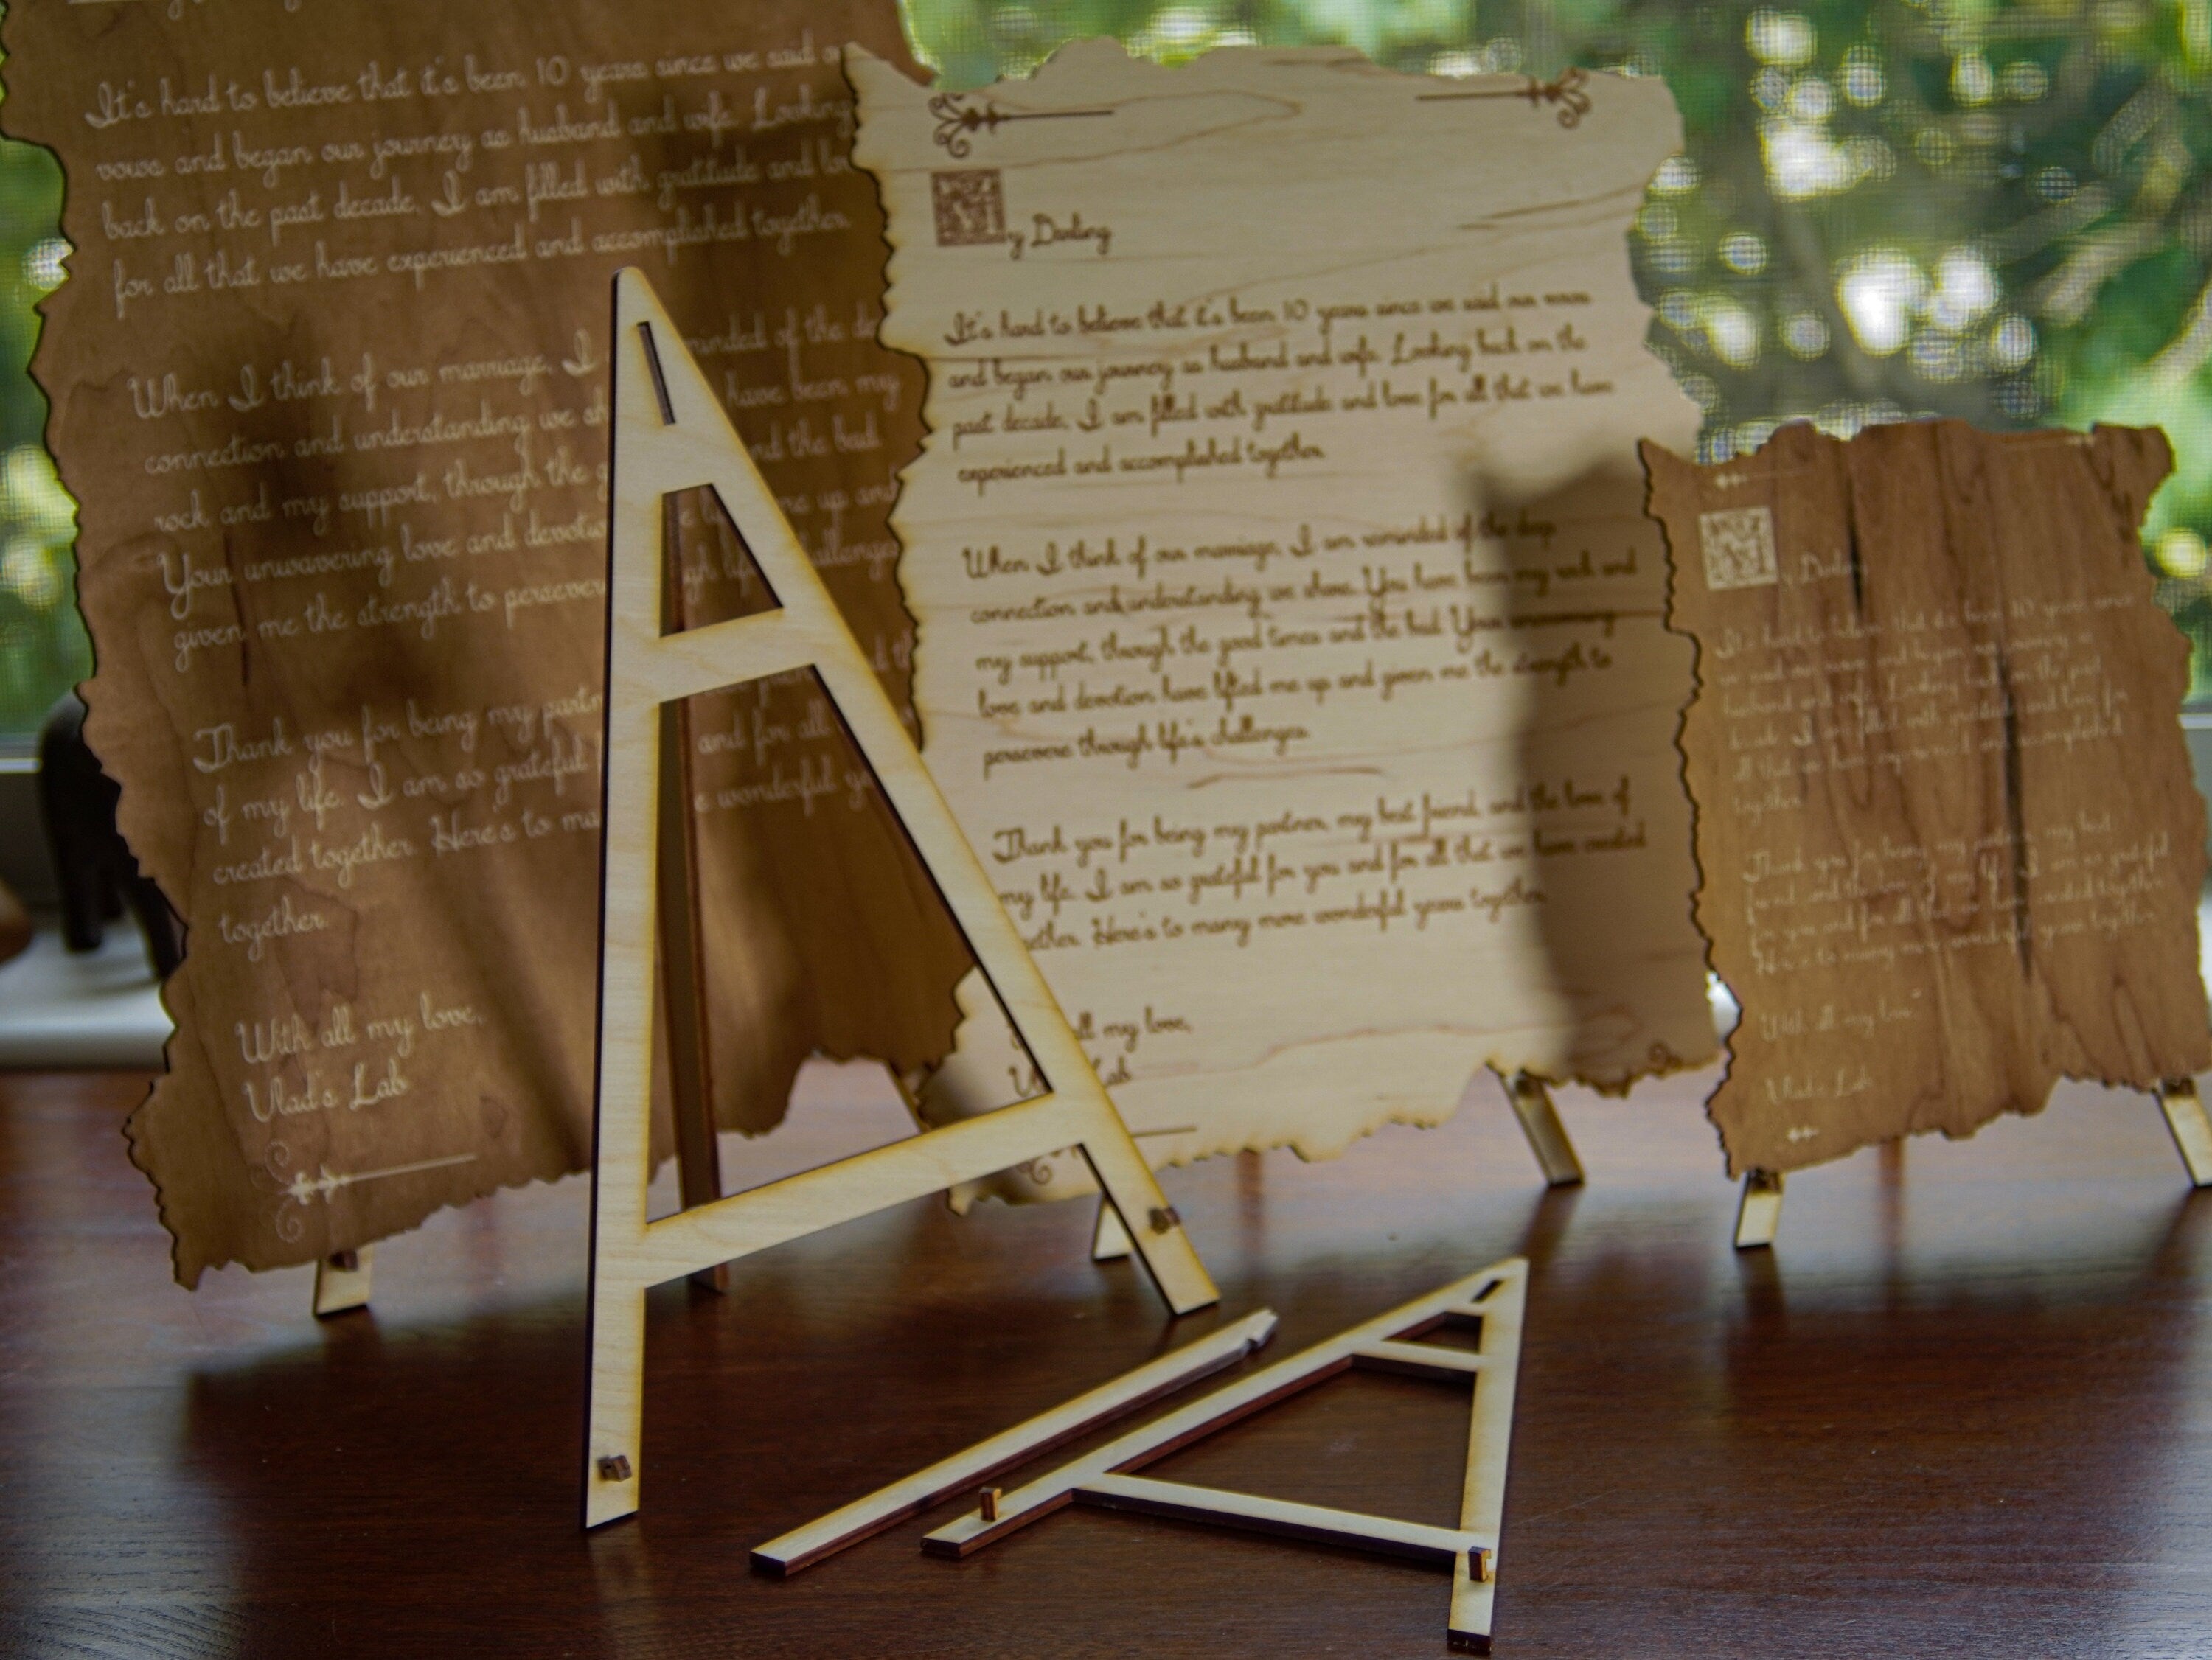 It's hard to believe that it's been 10 years since we said
vows and began our journey as husband and wife. Looking
back on the past decade, I am filled with gratitude and
for all that we have experienced and accomplished together.
When I think of our marriage, I
minded of the
connection and understanding we
have been my
rock and my support, through the
and the bad.
Your unwavering love and
me up and
given me the strength to
Thank you for being my
of my life. I am so grateful
and for all
created together. Here's to
wonderful
together.
With all my love,
Vlad's Lab
My Darling
It's hard to believe that it's been 10 years since we said our vows
and began our journey as husband and wife. Looking back on the
past decade, I am filled with gratitude and love for all that we have
experienced and accomplished together.
When I think of our marriage, I am reminded of the deep
connection and understanding we share. You have been my rock and
my support, through the good times and the bad. Your unwavering
love and devotion have lifted me up and given me the strength to
persevere through life's challenges.
Thank you for being my partner, my best friend, and the love of
my life. I am so grateful for you and for all that we have created
Here's to many more wonderful years together.
all my love,
Lab
M Darling
It's hard to believe that it's been 10 years since
we said our vows and began our journey as
husband and wife. Looking back on the past
decade, I am filled with gratitude and love for
all that we have experienced and accomplished
together.
Thank you for being my partner, my best
friend, and the love of my life. I am so grateful
for you and for all that we have created together.
Here's to many more wonderful years together.
With all my love,
Vlad's Lab